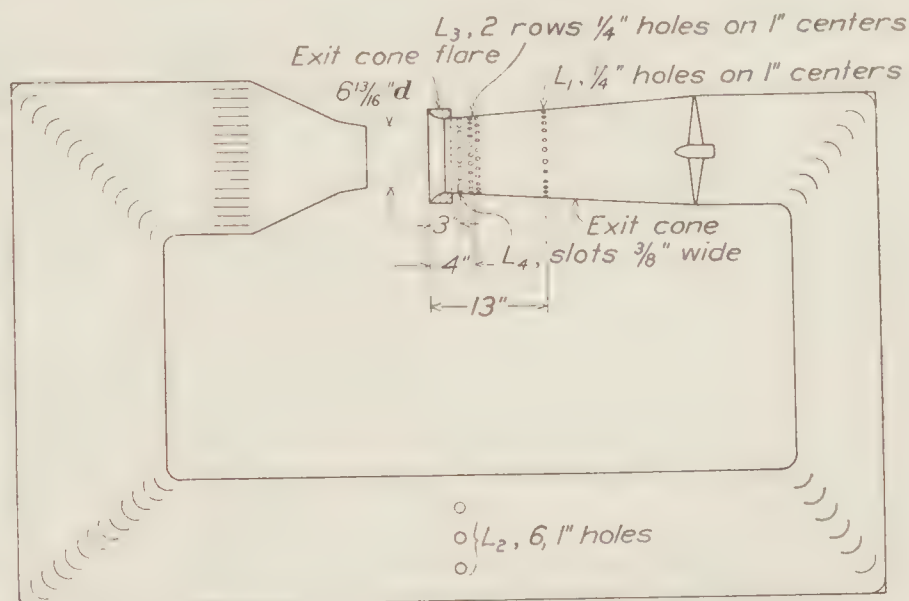 L₃, 2 rows ¼" holes on 1" centers
Exit cone flare
L₁, ¼" holes on 1" centers
6 13/16 "d
Exit cone
3"
L₄, slots ⅜" wide
4"
13"
L₂, 6, 1" holes